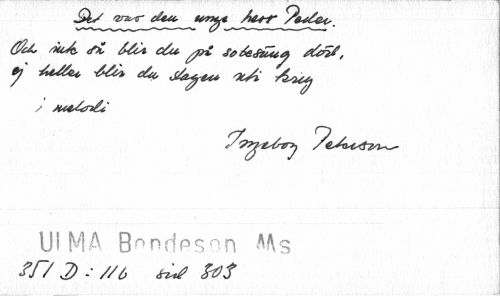 Det var den unge herr Peder.
Och ink så blir du på sotesäng död,
ej heller blir du slagen uti krig
1 melodi
Ingeborg Peterson
ULMA Bondeson Ms
351 D: 116 sid 303